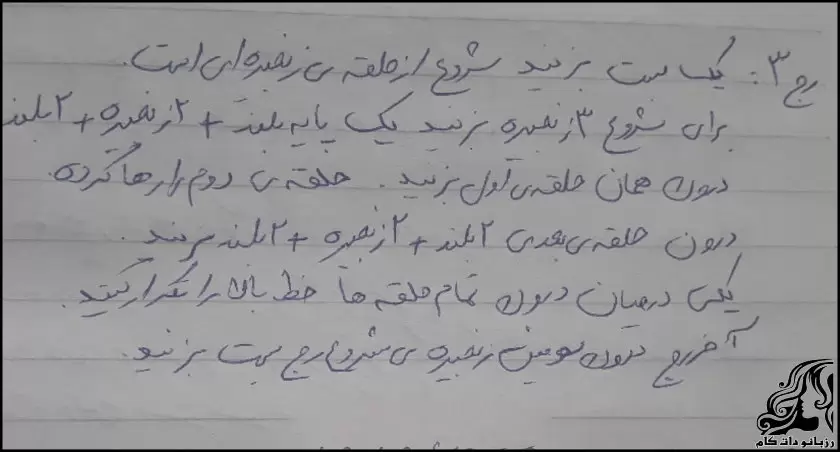 رج ۳: یک بست بزنید شروع از حلقه ی زنجیره ای است.
برای شروع ۳ زنجیره بزنید یک پایه بلند + ۲ زنجیره + ۲ بلند
درون همان حلقه ی اول بزنید. حلقه ی دوم را رها کرده
درون حلقه ی بعدی ۲ بلند + ۲ زنجیره + ۲ بلند بزنید.
یکی درمیان درون تمام حلقه ها خط بالا را تکرار کنید.
آخر رج درون سومین زنجیره ی شروع رج بست بزنید.
رزبانو دات کام